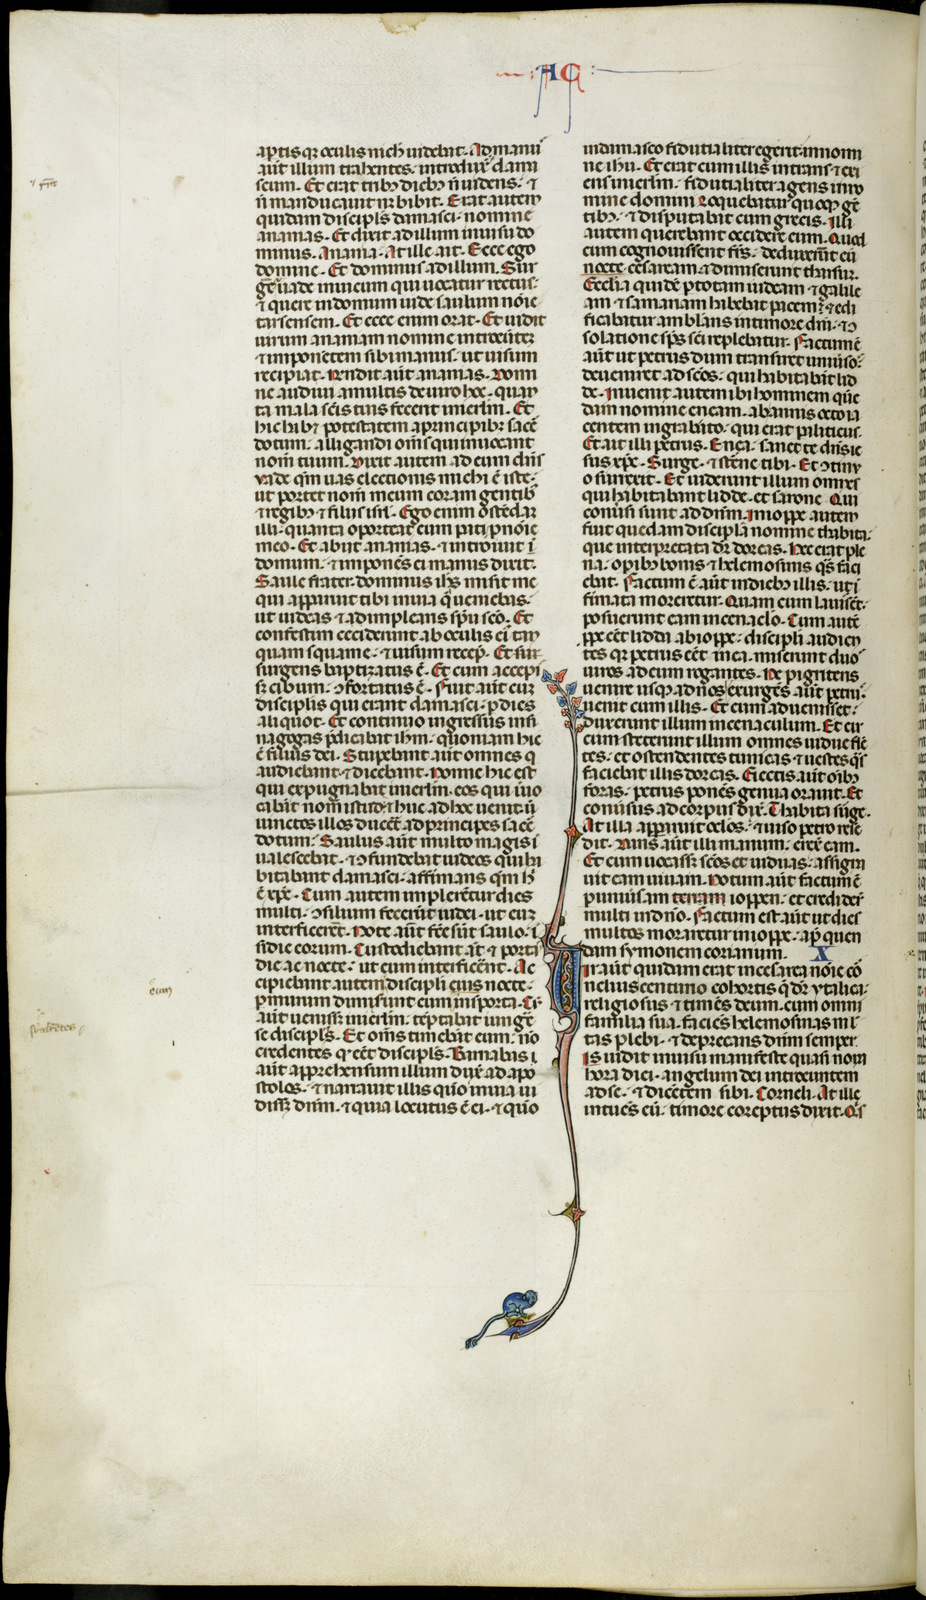 AC
aptisq; oculis nich uidebat. Ad manū
aūt illum trahentes. introduxer̄ dama
scum. Et erat trib; dieb; n̄ uidens. ⁊
n̄ manducauit neq; bibit. Erat autem
quidam discipl̄s damasci. nomine
ananias. Et dixit ad illum in uisu do
minus. Anania. At ille ait. Ecce ego
domine. Et dominus ad illum. Sur
ge ⁊ uade in uicum qui uocatur rectus.
⁊ quere in domum iude saulum noīe
tarsensem. Et ecce enim orat. Et uidit
uirum ananiam nomine introeūtē
⁊ imponētem sibi manus. ut uisum
recipiat. Rn̄dit aūt ananias. Domi
ne audiui a multis de uiro hoc. quan
ta mala sc̄is tuis fecerit in ierl̄m. Et
hic hib; potestatem a principib; sacē
dotum. alligandi om̄s qui inuocant
nom̄ tuum. Dixit autem ad eum dn̄s
Uade qm̄ uas electionis michi ē iste.
ut portet nom̄ meum coram gentib;
⁊ regib; ⁊ filiis isrl̄. Ego enim ostēdā
illi. quanta oporteat eum pati p noīe
meo. Et abiit ananias. ⁊ introiuit ī
domum. ⁊ imponēs ei manus dixit.
Saule frater. dominus ih̄s misit me
qui apparuit tibi in uia q̄ ueniebas.
ut uideas ⁊ adimplearis sp̄u sc̄o. Et
confestim ceciderunt ab oculis eī tan
quam squame. ⁊ uisum recep̄. Et sur
surgens baptizatus ē. Et cum accepi
s; cibum. ↄfortatus ē. Fuit aūt cum
disciplis qui erant damasci. p dies
aliquot. Et continuo ingressus in si
nagogas p̄dicabat ihm̄. quoniam hic
ē filius dei. Stupebant aūt omnes q
audiebant. ⁊ dicebant. Nonne hic est
qui expugnabat in ierl̄m. eos qui īuo
cabāt nom̄ istud. ⁊ huc ad hoc uenit. ū
uinctos illos ducēt ad principes sacē
dotum. Saulus aūt multo magis ī
ualescebat. ⁊ ↄfundebat iudeos qui ha
bitabant damasci. affirmans qm̄ hic
ē xp̄c. Cum autem implerētur dies
multi. ↄsilium fecerūt iudei. ut eum
interficerēt. Note aūt fc̄e sūt saulo. ī
sidie eorum. Custodiebant aūt ⁊ porta
die ac nocte. ut eum interficērt. Ac
cipientes autem discipli eius nocte.
p murum dimiserunt eum in sporta. Cū
aūt uenisset in ierl̄m. tēptabat iunge
se discipl̄s. Et om̄s timebāt eum. nō
credentes q; eēt discipl̄s. Barnabas ī
aūt apprehensum illum dux̄ ad apo
stolos. ⁊ narrauit illis quō in uia ui
diss; dn̄m. ⁊ quia locutus ē ei. ⁊ quō
in damasco fidutialiter egerit in nomi
ne ihū. Et erat cum illis intrans ⁊ exi
ens in ierl̄m. fidutialiter agens in no
mine domini. Loquebatur quoq; gē
tib;. ⁊ disputabat cum grecis. Illi
autem querebant occidere eum. Quod
cum cognouissent fr̄s. deduxerūt eū
nocte cesaream. ⁊ dimiserunt tharsū.
Eccl̄ia quidē p totam iudeam ⁊ galile
am ⁊ samariam habebat pacem. ⁊ edi
ficabatur ambulans in timore dn̄i. ⁊ ↄ
solatione sp̄s sc̄i replebatur. Factum ē
aūt ut petrus dum transiret uniuso
deueniret ad sc̄os. qui habitabāt lid
de. Inuenit autem ibi hominem quē
dam nomine eneam. ab annis octo ia
centem in grabato. qui erat paliticus.
Et ait illi petrus. Enea. sanet te dn̄s ie
sus xp̄c. Surge. ⁊ st̄ne tibi. Et ↄtinu
o surrexit. Et uiderunt illum omnes
qui habitabant lidde. et sarone. Qui
conūsi sunt ad dn̄m. In ioppe autem
fuit quedam discipla nomine thabita.
que interpretata dr̄ dorcas. Hec erat ple
na. opib; bonis ⁊ helemosinis q̄s faci
ebat. Factum ē aūt in dieb; illis. ut ī
firmata moreretur. Quam cum lauissēt.
posuerunt eam in cenaclo. Cum autē
ppe eēt lidda ab ioppe. discipli audien
tes q; petrus eēt in ea. miserunt duo
uiros ad eum rogantes. Ne pigriteris
uenire usq; ad nos. exurgēs aūt petr̄.
uenit cum illis. Et cum aduenisset.
duxerunt illum in cenaculum. Et cir
cumsteterunt illum omnes uidue flē
tes. et ostendentes tunicas ⁊ uestes q̄s
faciebat illis dorcas. Eiectis aūt oīb;
foras. petrus ponēs genua orauit. Et
conūsus ad corpus dix̄. Thabita surge.
At illa apparuit oc̄los. ⁊ uiso petro rese
dit. Dans aūt illi manum. erex̄ eam.
Et cum uocass; sc̄os et uiduas. assigna
uit eam uiuam. Notum aūt factum ē
p uniusam terram ioppen. et credider̄
multi in dn̄o. Factum est aūt ut dies
multos moraretur in ioppe. ap̄ quen
dam symonem coriarium. X
Uir aūt quidam erat in cesarea noīe cō
nelius centurio cohortis q̄ dr̄ ytalica.
religiosus ⁊ timēs deum. cum omni
familia sua. faciēs helemosinas ml̄
tas plebi. ⁊ deprecans dn̄m semper.
Is uidit in uisu manifeste quasi nona
hora diei. angelum dei introeuntem
ad se. ⁊ dicētem sibi. Corneli. At ille
intuēs eū. timore correptus dixit. Q̄s
eum